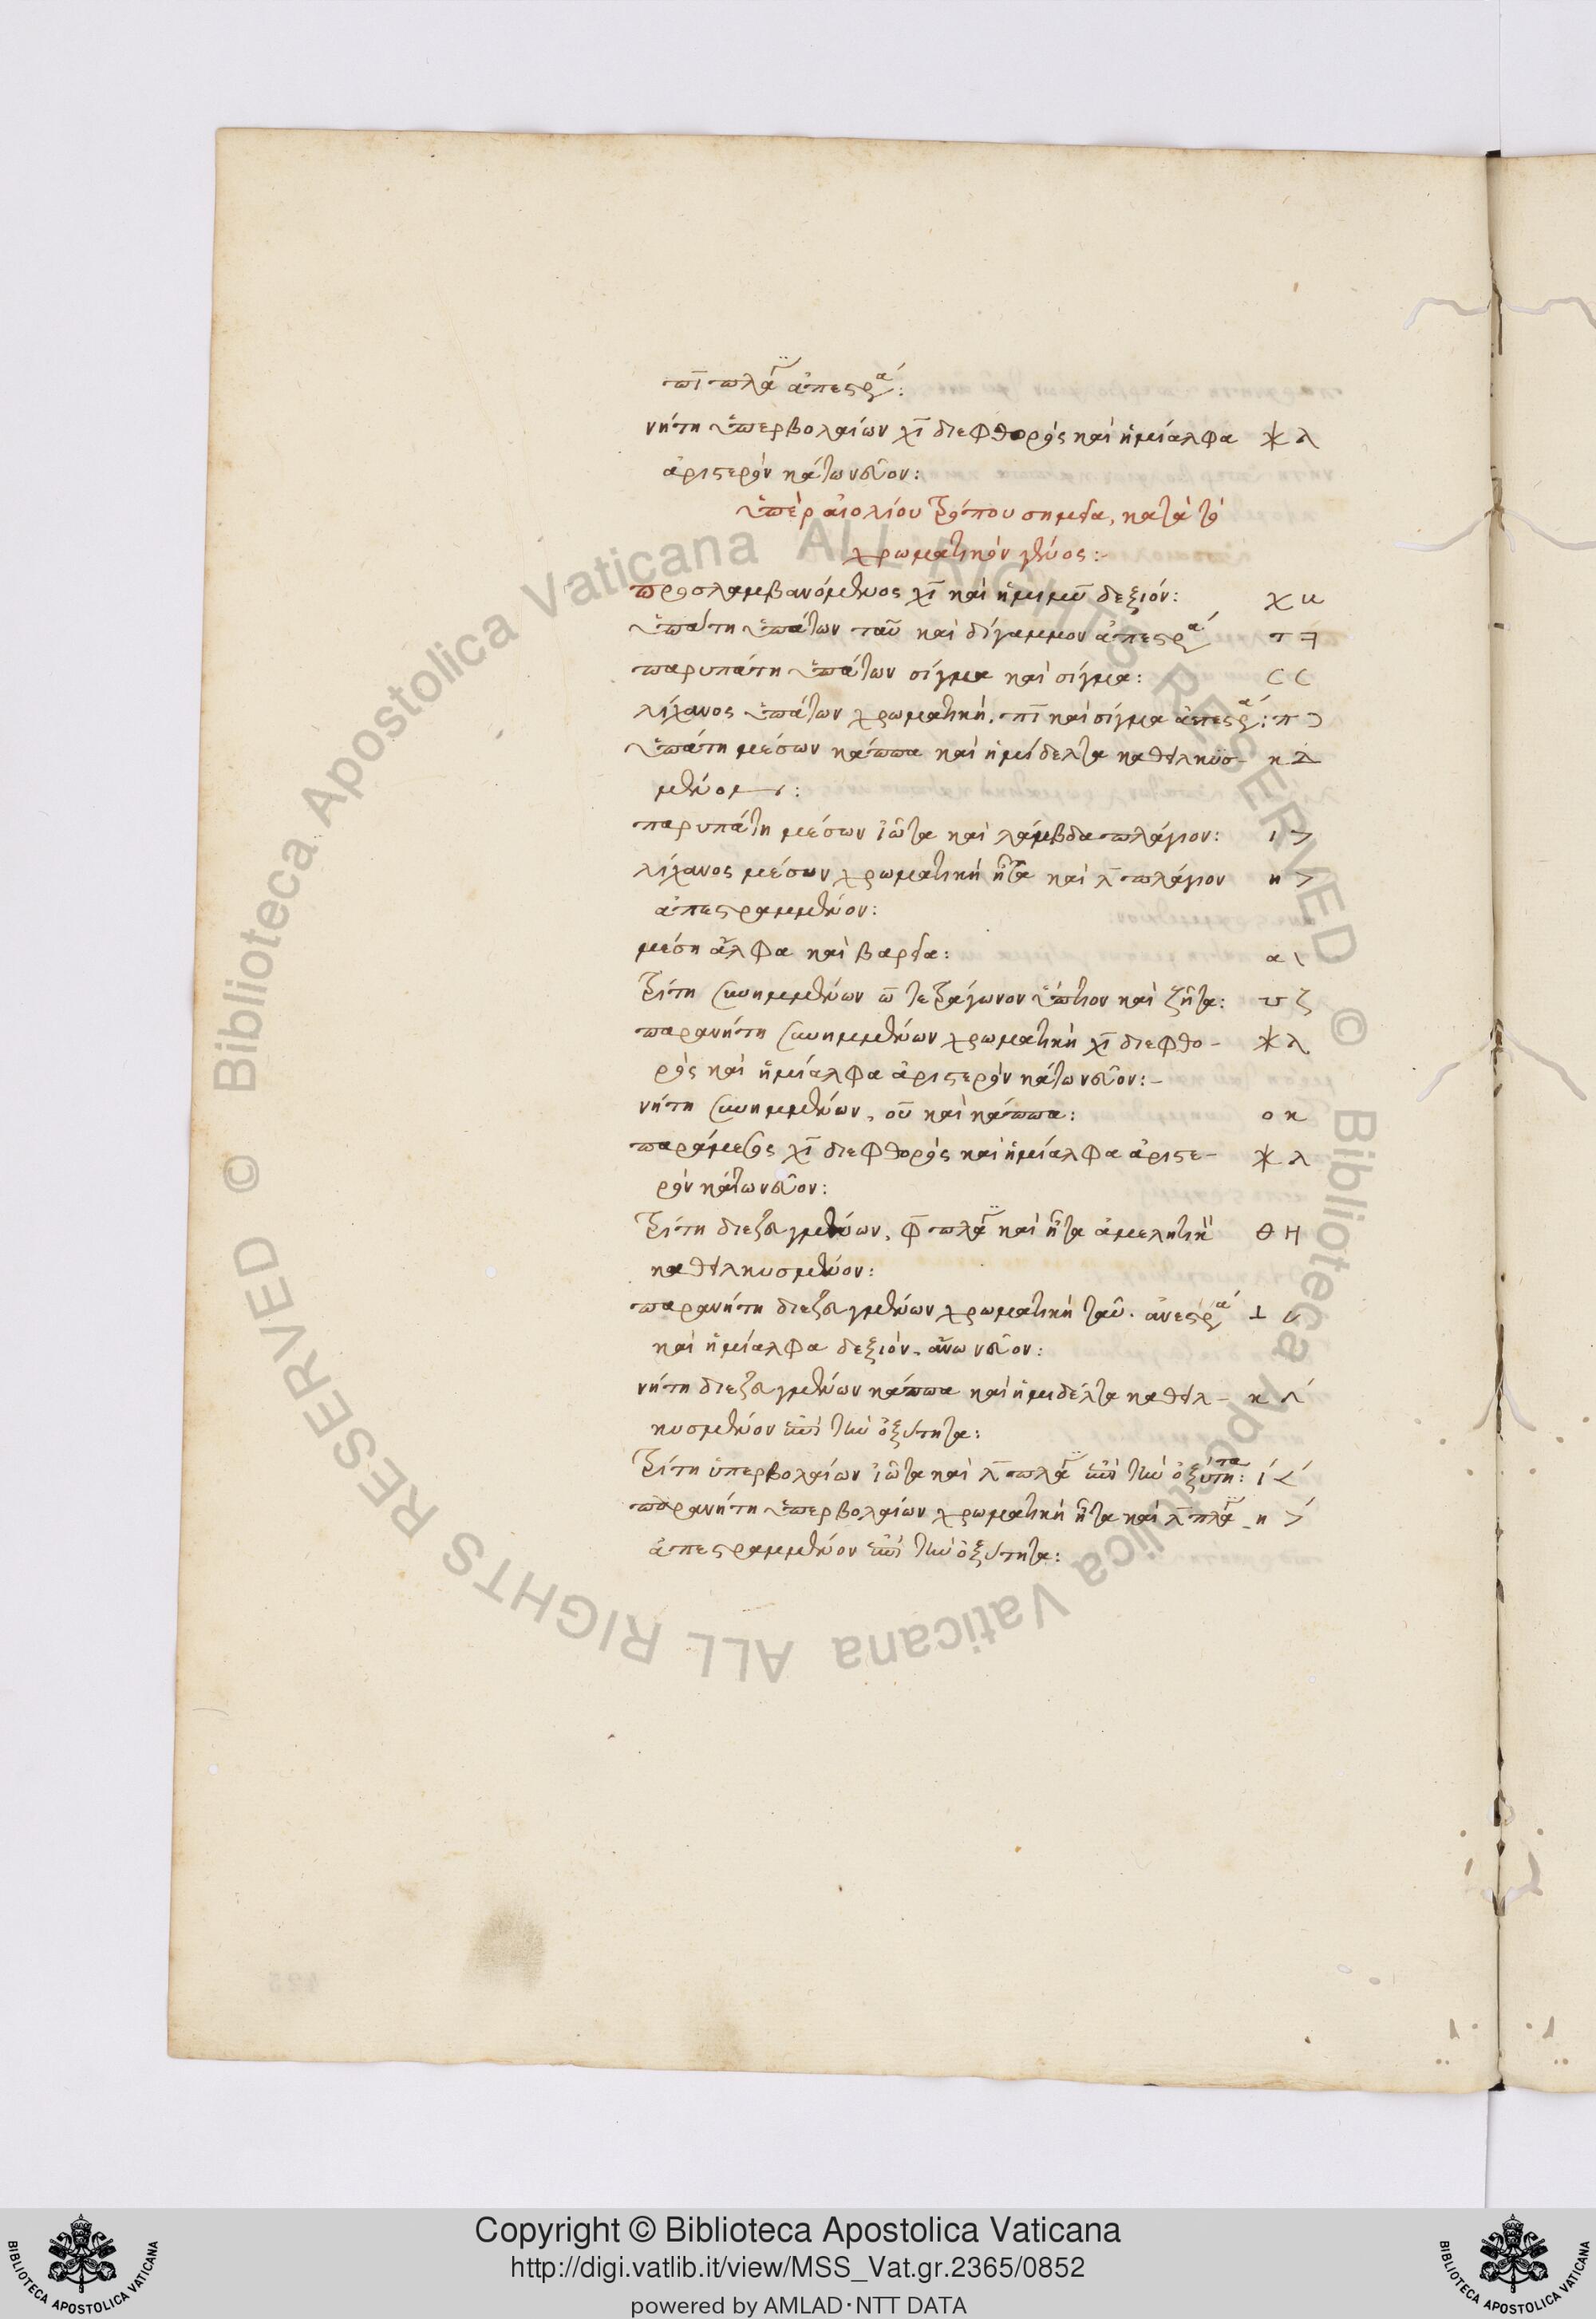 πῖ πλάγ ἀπεστρα:
νήτη ὑπερβολαίων χῖ διεφθορὸς καὶ ἡμίαλφα ⚹ λ
ἀριστερὸν κάτω νεῦον:
ὑπὲρ αἰολίου τρόπου σημεῖα, κατὰ τὸ
χρωματικὸν γένος:-
προσλαμβανόμενος χῖ καὶ ἡμιμῦ δεξιόν: χ
ὑπάτη ὑπάτων ταῦ καὶ δίγαμμον ἀπεστρα τ ꟻ
παρυπάτη ὑπάτων σίγμα καὶ σίγμα: C C
λίχανος ὑπάτων χρωματική. πῖ καὶ σίγμα ἀπεστρα: π Ɔ
ὑπάτη μέσων κάππα καὶ ἡμίδελτα καθειλκυσ- κ
μένον:
παρυπάτη μέσων ἰῶτα καὶ λάμβδα πλάγιον: ι >
λίχανος μέσων χρωματική ἦτα καὶ λ πλάγιον η >
ἀπεστραμμένον:
μέση ἄλφα καὶ βαρεῖα: α \
τρίτη συνημμένων ω τετράγωνον ὕπτιον καὶ ζῆτα: ζ
παρανήτη συνημμένων χρωματικὴ χῖ διεφθο- ⚹ λ
ρὸς καὶ ἡμίαλφα ἀριστερὸν κάτω νεῦον:-
νήτη συνημμένων, οὖ καὶ κάππα: ο κ
παράμεσος χῖ διεφθορὸς καὶ ἡμίαλφα ἀριστε- ⚹ λ
ρὸν κάτω νεῦον:
τρίτη διεζευγμένων, φ πλάγ καὶ ἦτα ἀμελητικ θ Η
καθειλκυσμένον:
παρανήτη διεζευγμένων χρωματικὴ ταῦ. ἀνεστρα ⊥
καὶ ἡμίαλφα δεξιόν. ἄνω νεῦον:
νήτη διεζευγμένων κάππα καὶ ἡμιδέλτα καθειλ- κ λ΄
κυσμένον ἐπὶ τὴν ὀξύτητα:
τρίτη ὑπερβολαίων ἰῶτα καὶ λ πλάγ ἐπὶ τὴν ὀξύτητα: ι΄ <΄
παρανήτη ὑπερβολαίων χρωματικὴ ἦτα καὶ λ πλάγ η >΄
ἀπεστραμμένον ἐπὶ τὴν ὀξύτητα:
© Biblioteca Apostolica Vaticana ALL RIGHTS RESERVED © Biblioteca Apostolica Vaticana ALL RIGHTS RESERVED
Copyright © Biblioteca Apostolica Vaticana
http://digi.vatlib.it/view/MSS_Vat.gr.2365/0852
powered by AMLAD·NTT DATA
BIBLIOTECA APOSTOLICA VATICANA
BIBLIOTECA APOSTOLICA VATICANA